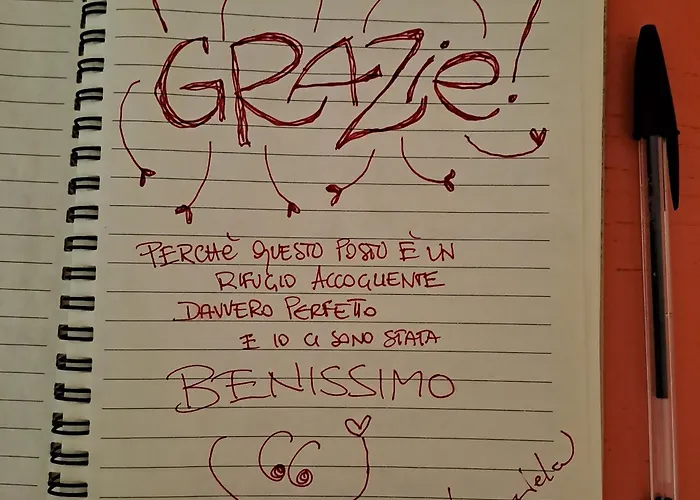 GRAZie!
PERCHÈ QUESTO POSTO È UN
RIFUGIO ACCOGLIENTE
DAVVERO PERFETTO
E IO CI SONO STATA
BENISSIMO